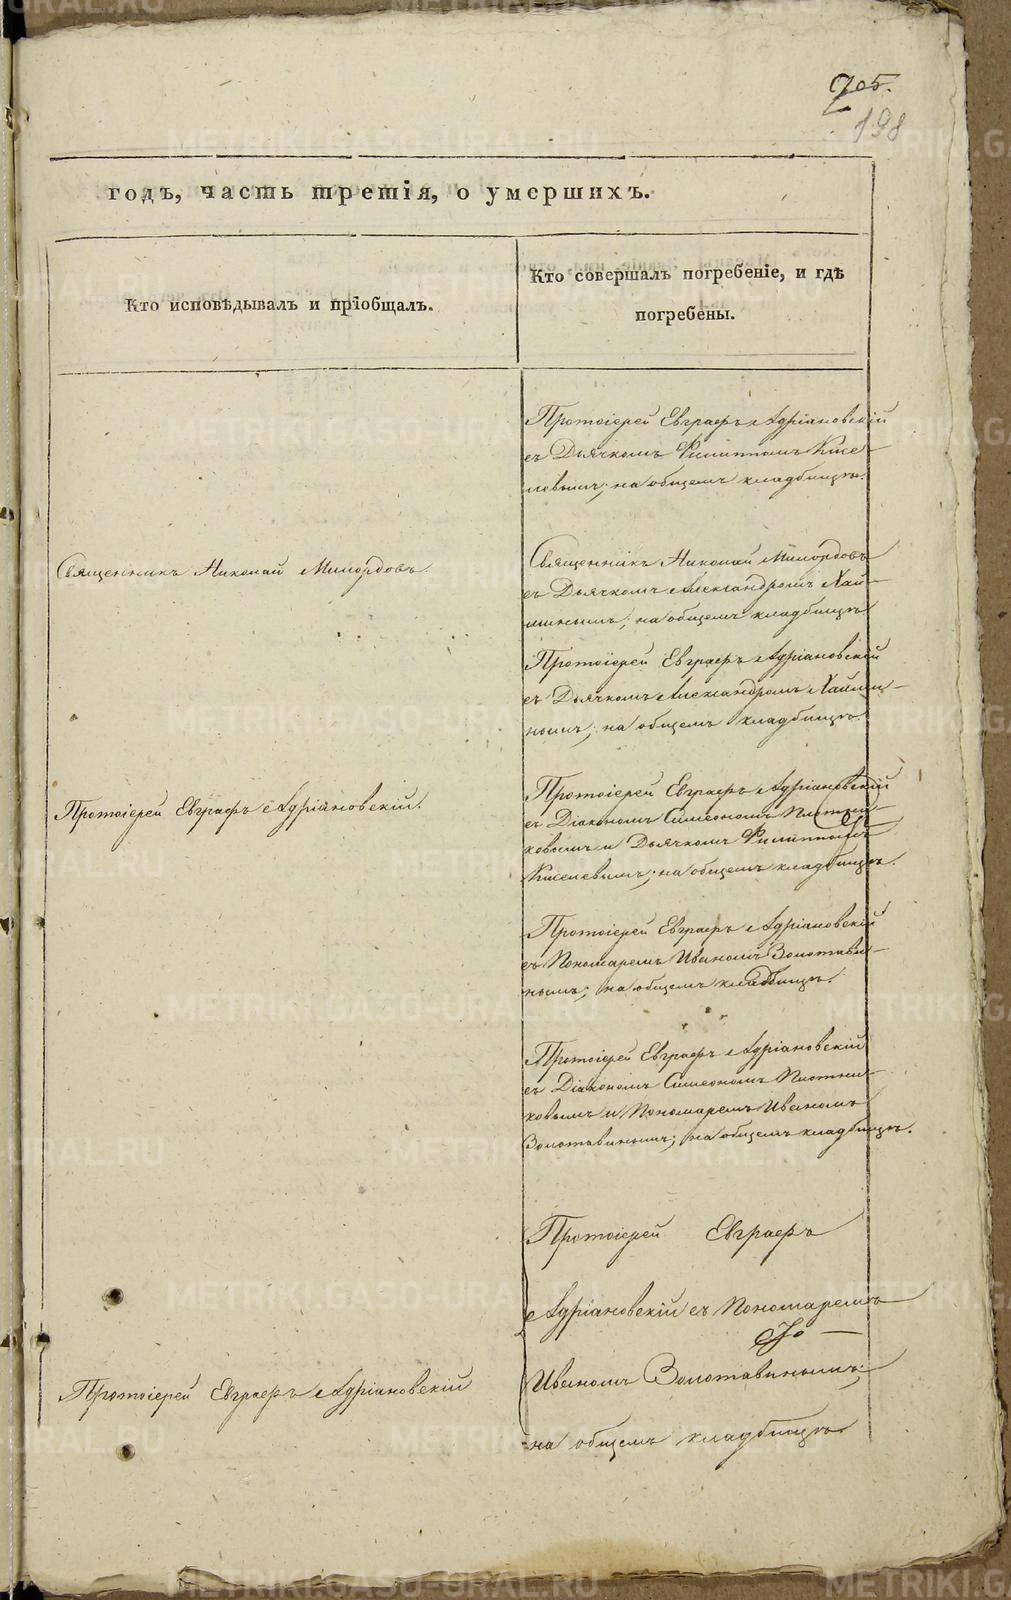 705.
198
годъ, часть третія, о умершихъ.
Кто исповѣдывалъ и пріобщалъ.
Кто совершалъ погребеніе, и гдѣ
погребены.
Протоіерей Евграфъ Адріановскій
съ Дьячкомъ Филиппомъ Кисе-
левымъ; на общемъ кладбищѣ.
Священникъ Николай Милордовъ
Священникъ Николай Милордовъ
съ Дьячкомъ Александромъ Хай-
минымъ; на общемъ кладбищѣ
Протоіерей Евграфъ Адріановскій
съ Дьячкомъ Александромъ Хайми-
нымъ; на общемъ кладбищѣ.
Протоіерей Евграфъ Адріановскій.
Протоіерей Евграфъ Адріановскій
съ Діакономъ Симеономъ Плотни-
ковымъ и Дьячкомъ Филиппомъ
Киселевымъ; на общемъ кладбищѣ.
Протоіерей Евграфъ Адріановскій
съ Пономаремъ Иваномъ Золотави-
нымъ; на общемъ кладбищѣ.
Протоіерей Евграфъ Адріановскій
съ Діакономъ Симеономъ Плотни-
ковымъ и Пономаремъ Иваномъ
Золотавинымъ; на общемъ кладбищѣ.
Протоіерей Евграфъ
Адріановскій съ Пономаремъ
Протоіерей Евграфъ Адріановскій
Иваномъ Золотавинымъ;
на общемъ кладбищѣ
METRIKI.GASO-URAL.RU